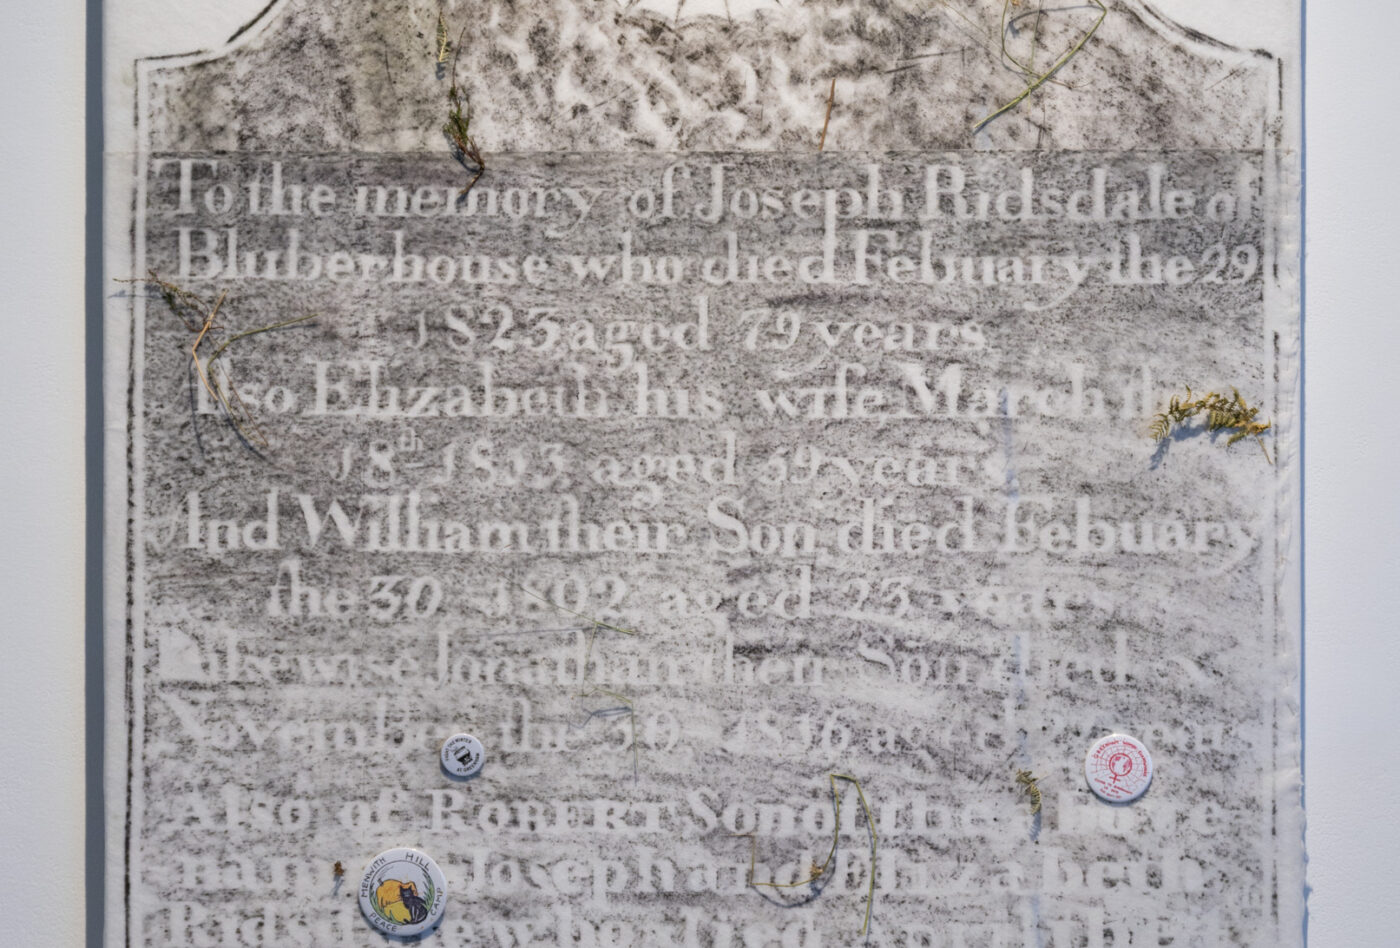 To the memory of Joseph Ridsdale of
Bluberhouse who died Febuary the 29
1823 aged 79 years
Also Elizabeth his wife March the
18th 1813 aged 59 years
And William their Son died Febuary
the 30 1802 aged 23 years
Likewise Jonathan their Son died
November the 30 1816 aged years
Also of ROBERT Son of the
Joseph and Elizabeth
who died
MENWITH HILL
PEACE CAMP